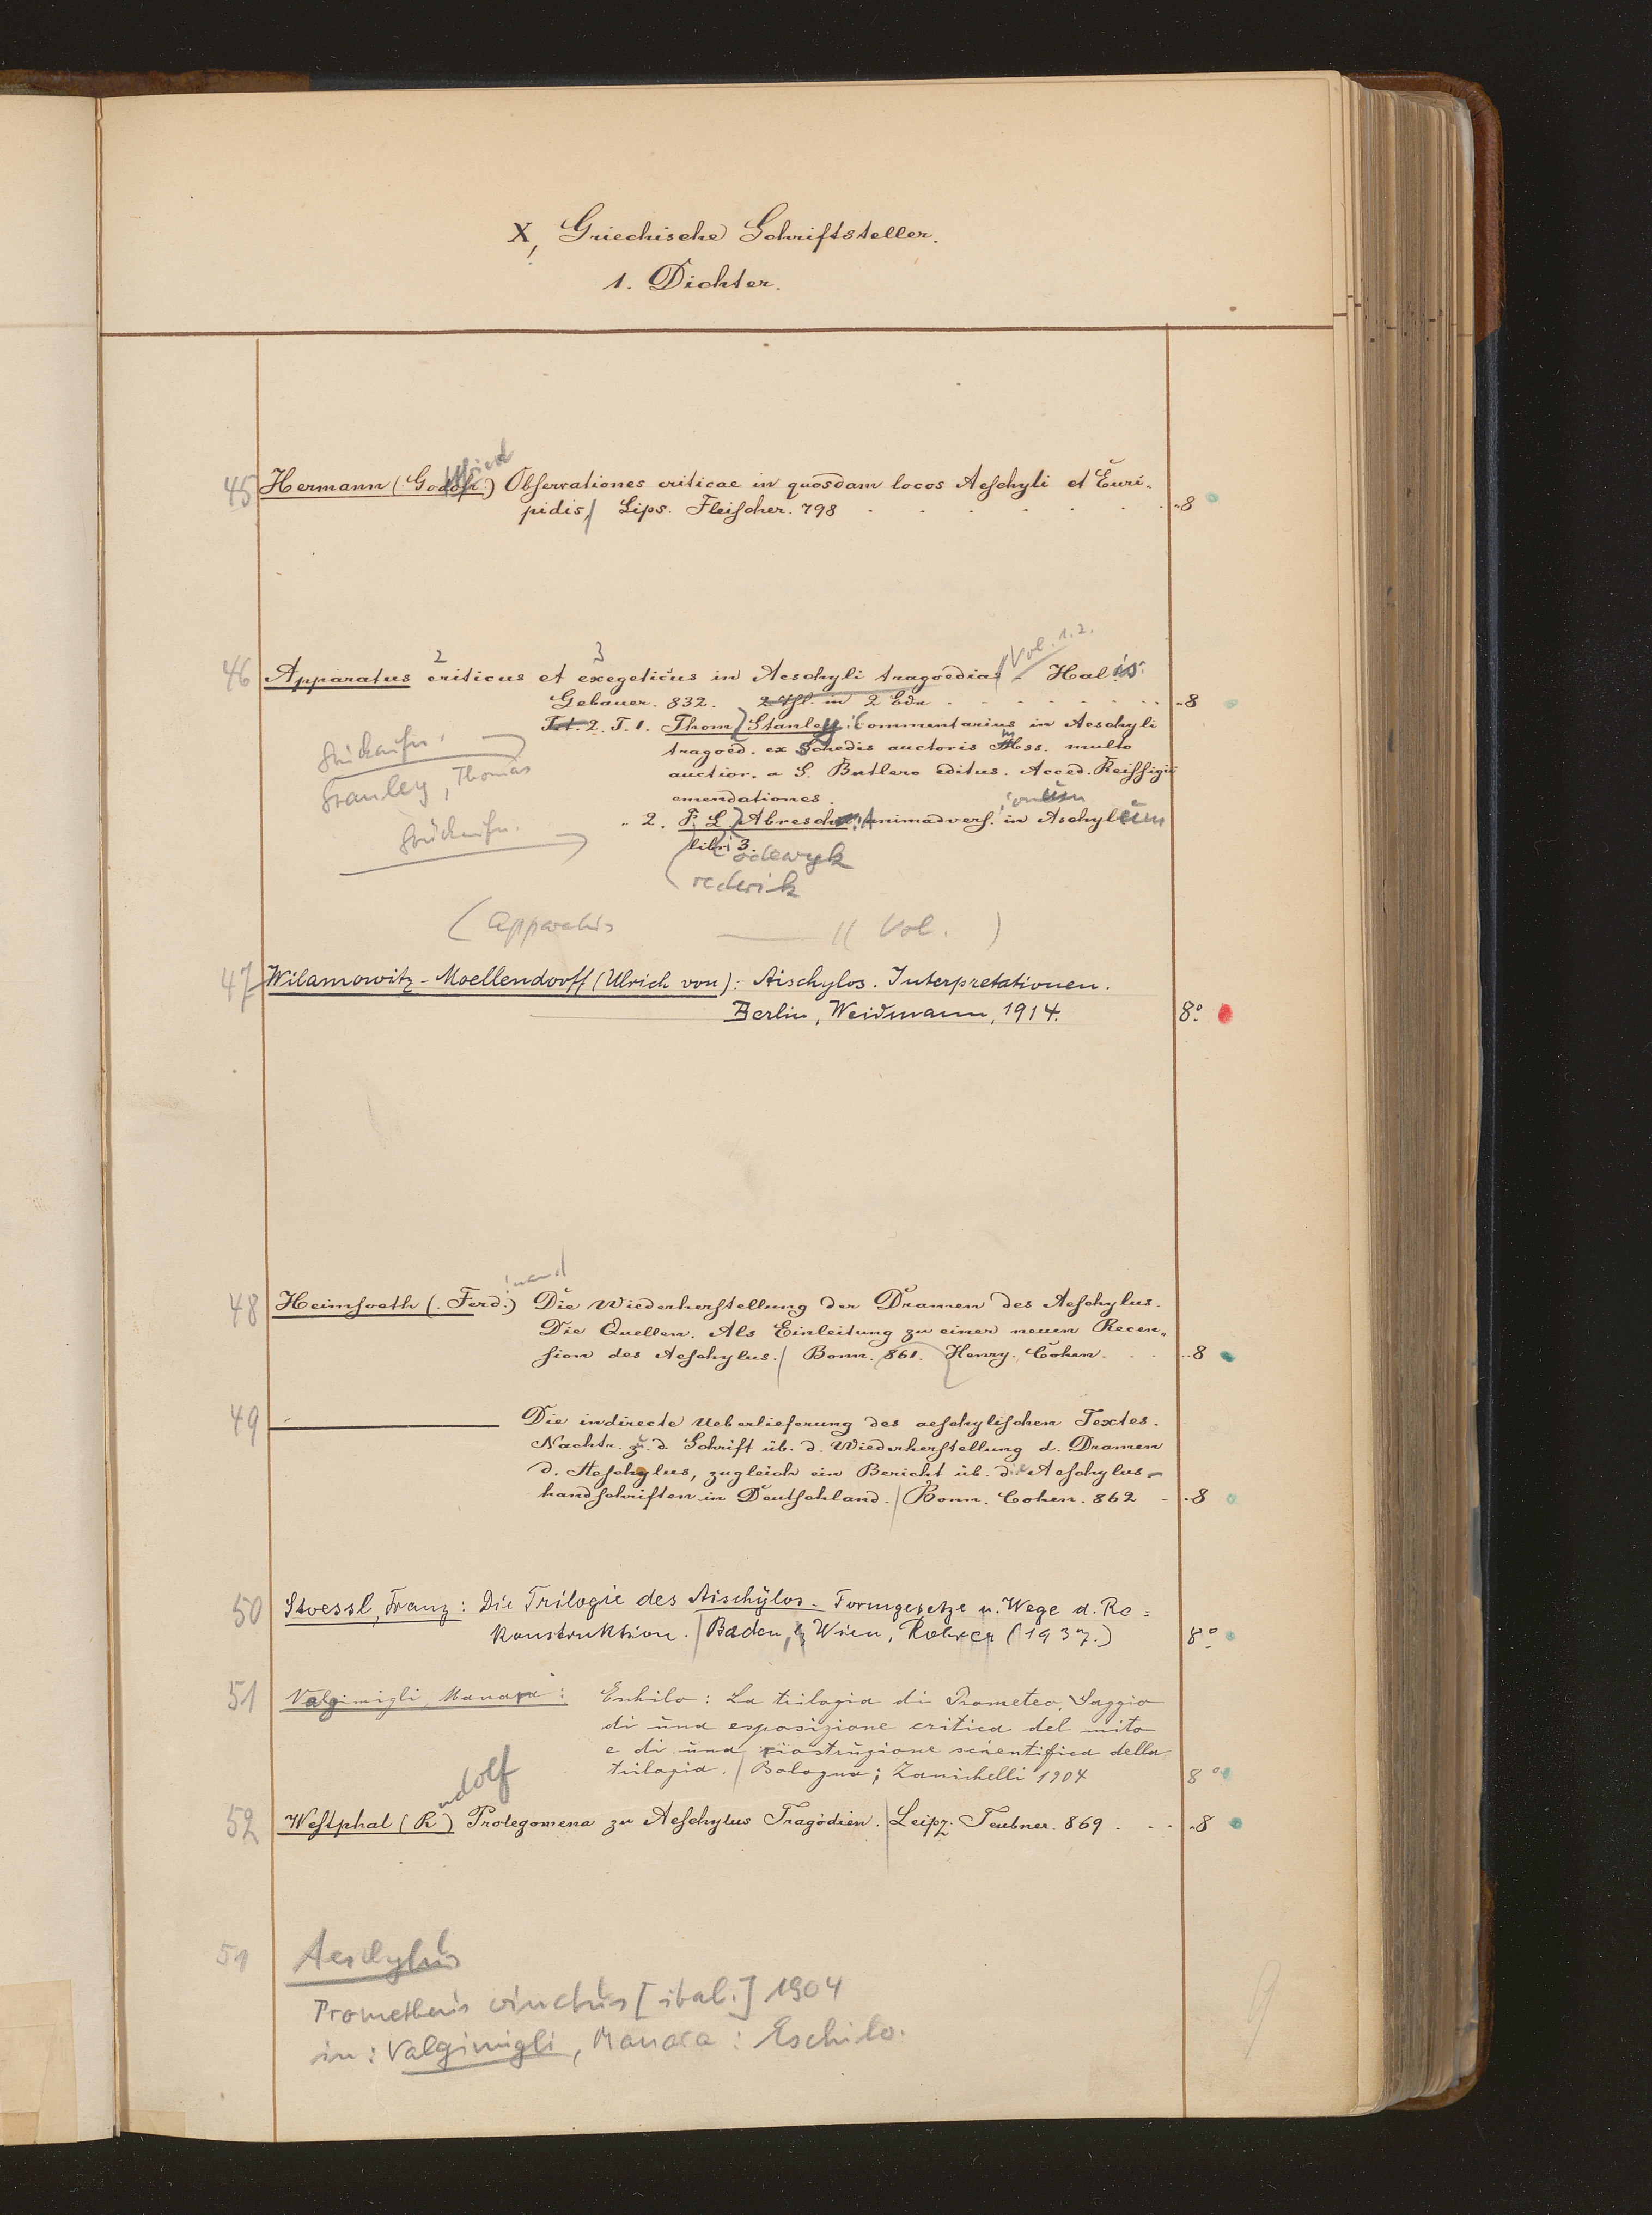 X, Griechische Schriftsteller.
1. Dichter.
45 Hermann (Godofr.) Observationes criticae in quosdam locos Aeschyli et Euri-
pidis, Lips. Fleischer. 798 8
Vol. 1.2.
2 3
46 Apparatus criticus et exegeticus in Aeschyli tragoedias Halis.
Gebauer. 832. in 2 Bdn 8
2. T. 1. Thom Stanley Commentarius in Aeschyli
tragoed. ex Schedis auctoris Mss. multo
auctior. a S. Butlero editus. Acced. Reissigii
emendationes.
Stücaufn.
Stanley, Thomas
2. F. L. Abresch Animadvers. in Aschyleum
libri 3.
Stücaufn.
odewyk
rederik
(Apparatus Vol. )
47 Wilamowitz-Moellendorff (Ulrich von): Aischylos. Interpretationen.
Berlin, Weidmann, 1914. 8°
inand
48 Heimsoeth (Ferd.) Die Wiederherstellung der Dramen des Aeschylus.
Die Quellen. Als Einleitung zu einer neuen Recen-
sion des Aeschylus. Bonn. 861. Henry. Cohen. 8
49 Die indirecte Ueberlieferung des aeschylischen Textes.
Nachtr. zu. d. Schrift üb. d. Wiederherstellung d. Dramen
d. Aeschylus, zugleich ein Bericht üb. die Aeschylus-
handschriften in Deutschland. Bonn. Cohen. 862 8
50 Stoessl, Franz: Die Trilogie des Aischylos. Formgesetze u. Wege d. Re=
konstruktion. Baden, Wien, Rohrer (1937.) 8°
51 Valgimigli, Manara: Eschilo: La trilogia di Prometeo, Saggio
di una esposizione critica del mito
e di una ricostruzione scientifica della
trilogia. Bologna; Zanichelli 1904 8°
udolf
52 Westphal (R) Prolegomena zu Aeschylus Tragödien. Leipz. Teubner. 869 8
51 Aeschylus
Prometheus vinctus [ital.] 1904
in: Valgimigli, Manara: Eschilo.
9